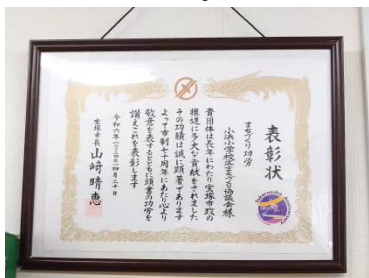 表彰状
まちづくり功労
小浜小学校区まちづくり協議会様
貴団体は長年にわたり宝塚市政の
推進に多大な貢献をされました
その功績は誠に顕著であります
よって市制七十周年にあたり心より
敬意を表するとともに頭書の功労を
讃えこれを表彰します
令和六年(二〇二四年)四月二十日
宝塚市長 山﨑晴恵